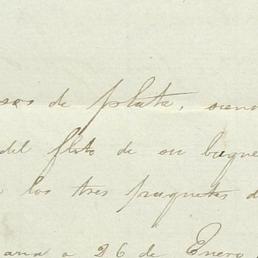 sos de plata, sien
del flete de su buque
los tres paquetes d
ana a 26 de Enero